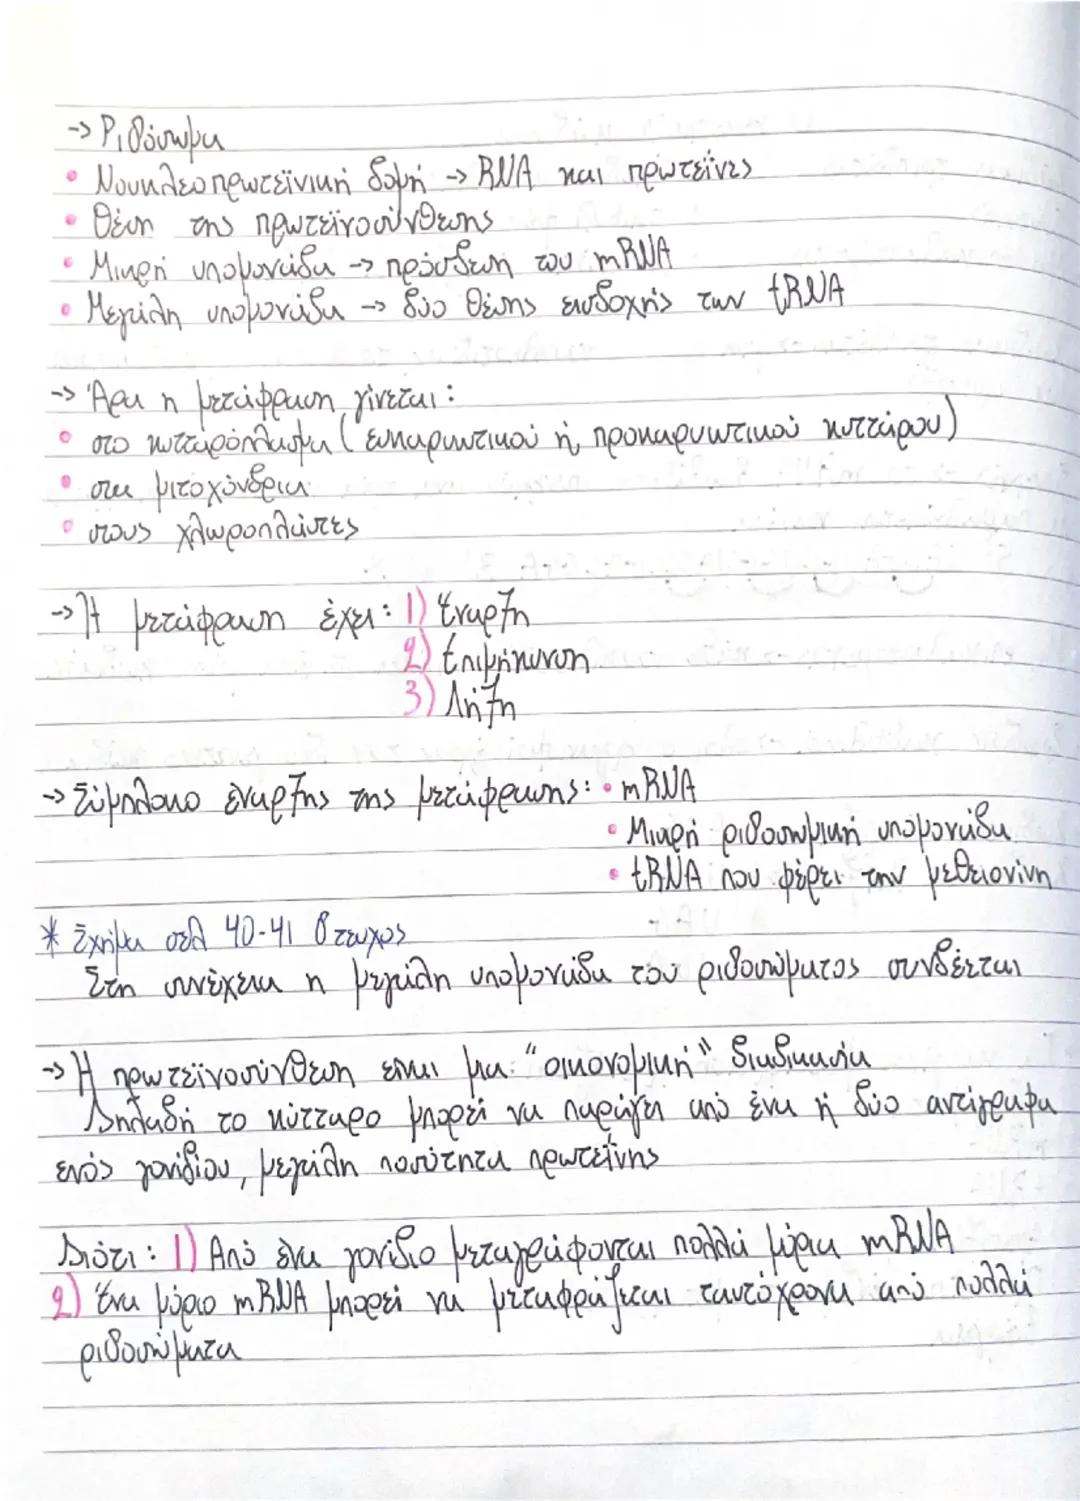 -> Ριβόσωμα
• Νουκλεοπρωτεϊνική δομή -> RNA και πρωτεΐνες
• Θέση της πρωτεϊνοσύνθεσης
• Μικρή υπομονάδα -> πρόσδεση του mRNA
• Μεγάλη υπομονάδα -> δύο θέσης εισδοχής των tRNA
-> Άρα η μετάφραση γίνεται:
• στο κυτταρόπλασμα (ευκαρυωτικού ή προκαρυωτικού κυττάρου)
• στα μιτοχόνδρια
• στους χλωροπλάστες
-> Η μετάφραση έχει: 1) Έναρξη
2) Επιμήκυνση
3) Λήξη
-> Σύμπλοκο έναρξης της μετάφρασης: • mRNA
• Μικρή ριβοσωμική υπομονάδα
• tRNA που φέρει την μεθειονίνη
* Σχήμα σελ 40-41 β τευχος
Στη συνέχεια η μεγάλη υπομονάδα του ριβοσώματος συνδέεται
-> Η πρωτεϊνοσύνθεση είναι μια "οικονομική" διαδικασία
Δηλαδή το κύτταρο μπορεί να παράγει από ένα ή δύο αντίγραφα
ενός γονιδίου, μεγάλη ποσότητα πρωτεΐνης
Διότι: 1) Από ένα γονίδιο μεταγράφονται πολλά μόρια mRNA
2) Ένα μόριο mRNA μπορεί να μεταφράζεται ταυτόχρονα από πολλά
ριβοσώματα